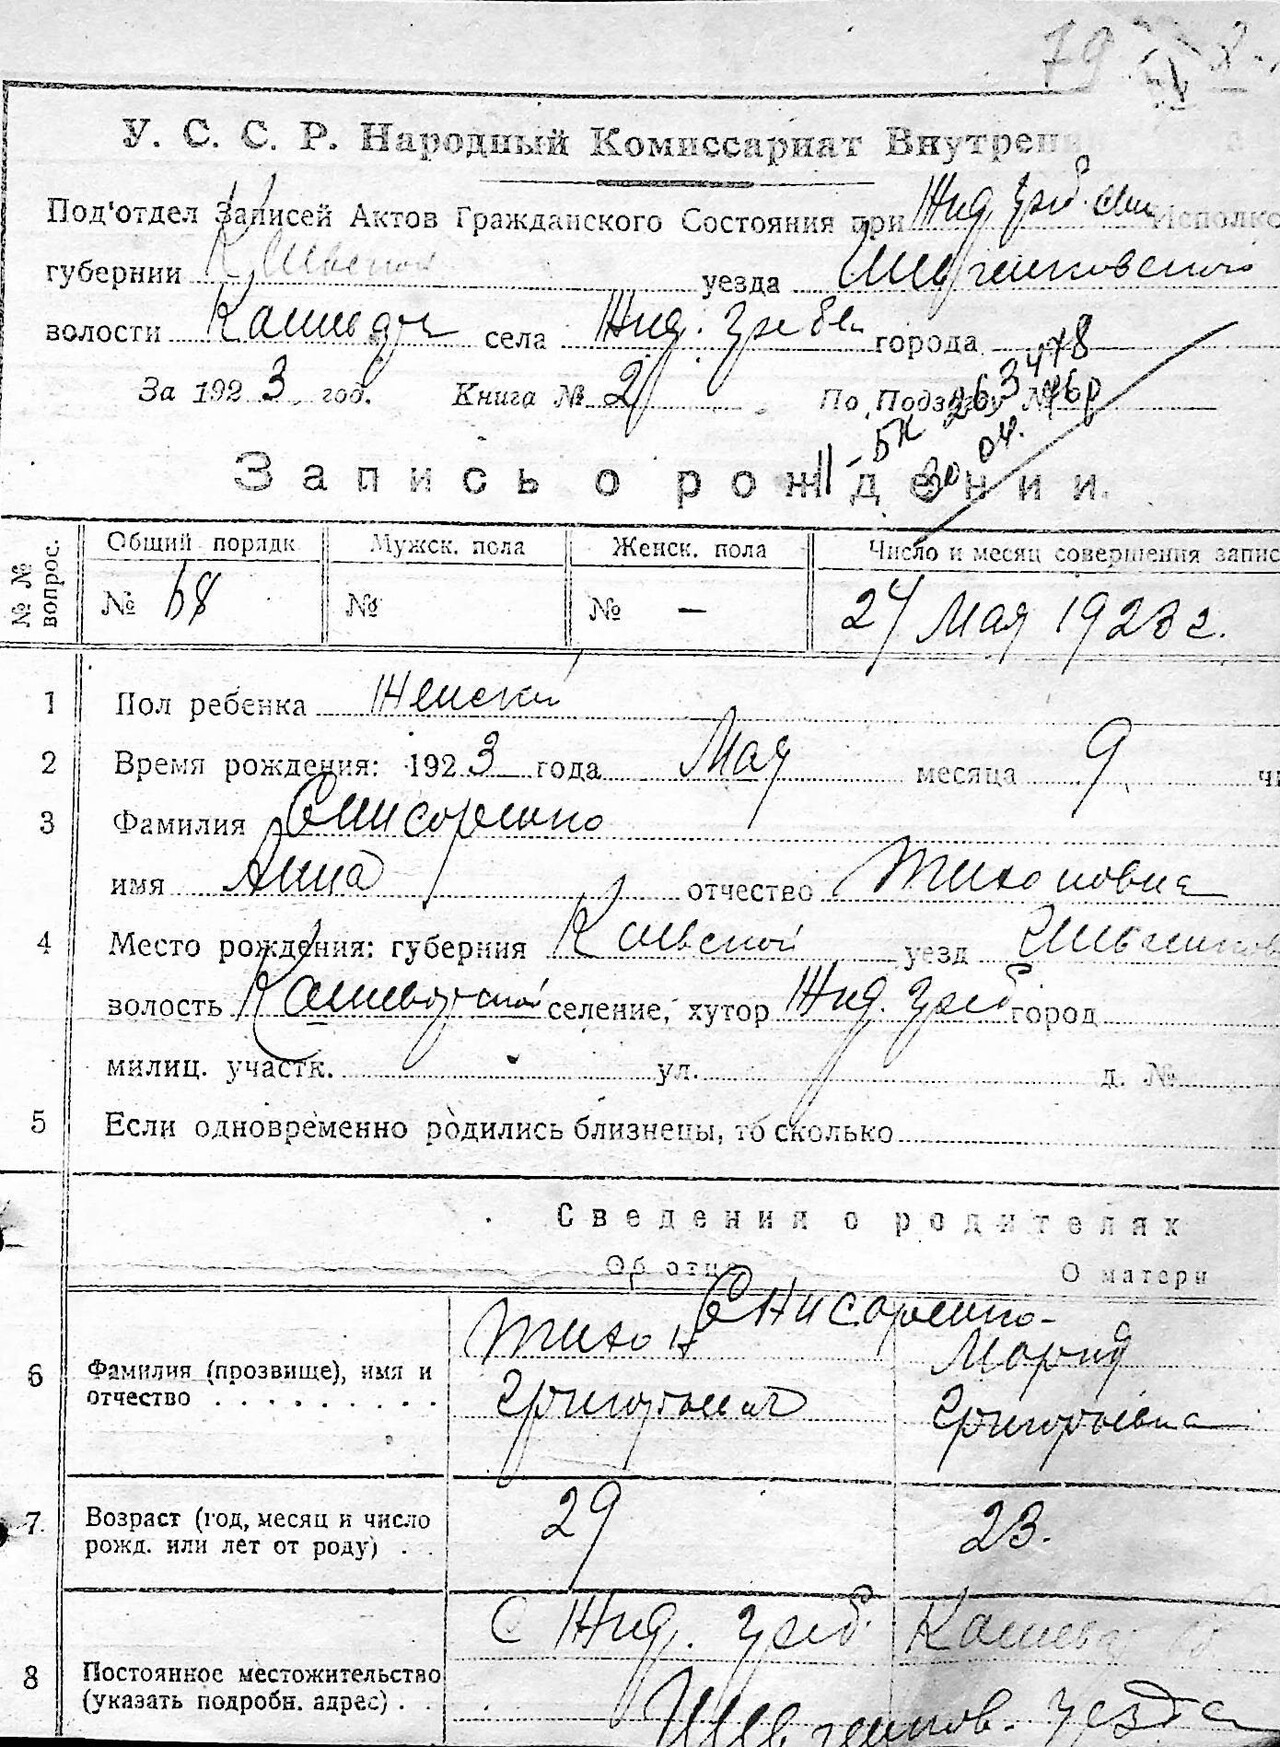 79
У. С. С. Р. Народный Комиссариат Внутрен
Под'отдел Записей Актов Гражданского Состояния при Жид. Греб. Исполко
губернии Киевской уезда Шевченковского
волости села Жид. Гребли города
За 1923 год. Книга № 2 По Подз
Запись о рождении.
№ № вопрос. Общий порядк Мужск. пола Женск. пола Число и месяц совершения запис
№ 68 № № — 24 Мая 1923 г.
1 Пол ребенка Женский
2 Время рождения: 1923 года Мая месяца 9 чи
3 Фамилия Снисоренко
имя Анна отчество Тихоновна
4 Место рождения: губерния Киевской уезд Шевченков
волость селение, хутор Жид. Греб город
милиц. участк. ул. д. №
5 Если одновременно родились близнецы, то сколько
Сведения о родителях
Об отце О матери
Снисоренко-
6 Фамилия (прозвище), имя и отчество Тихон Мария
Григорьевич Григорьевна
7 Возраст (год, месяц и число рожд. или лет от роду) 29 23.
С Жид. Греб.
8 Постоянное местожительство (указать подробн. адрес) Шевченков. уезда